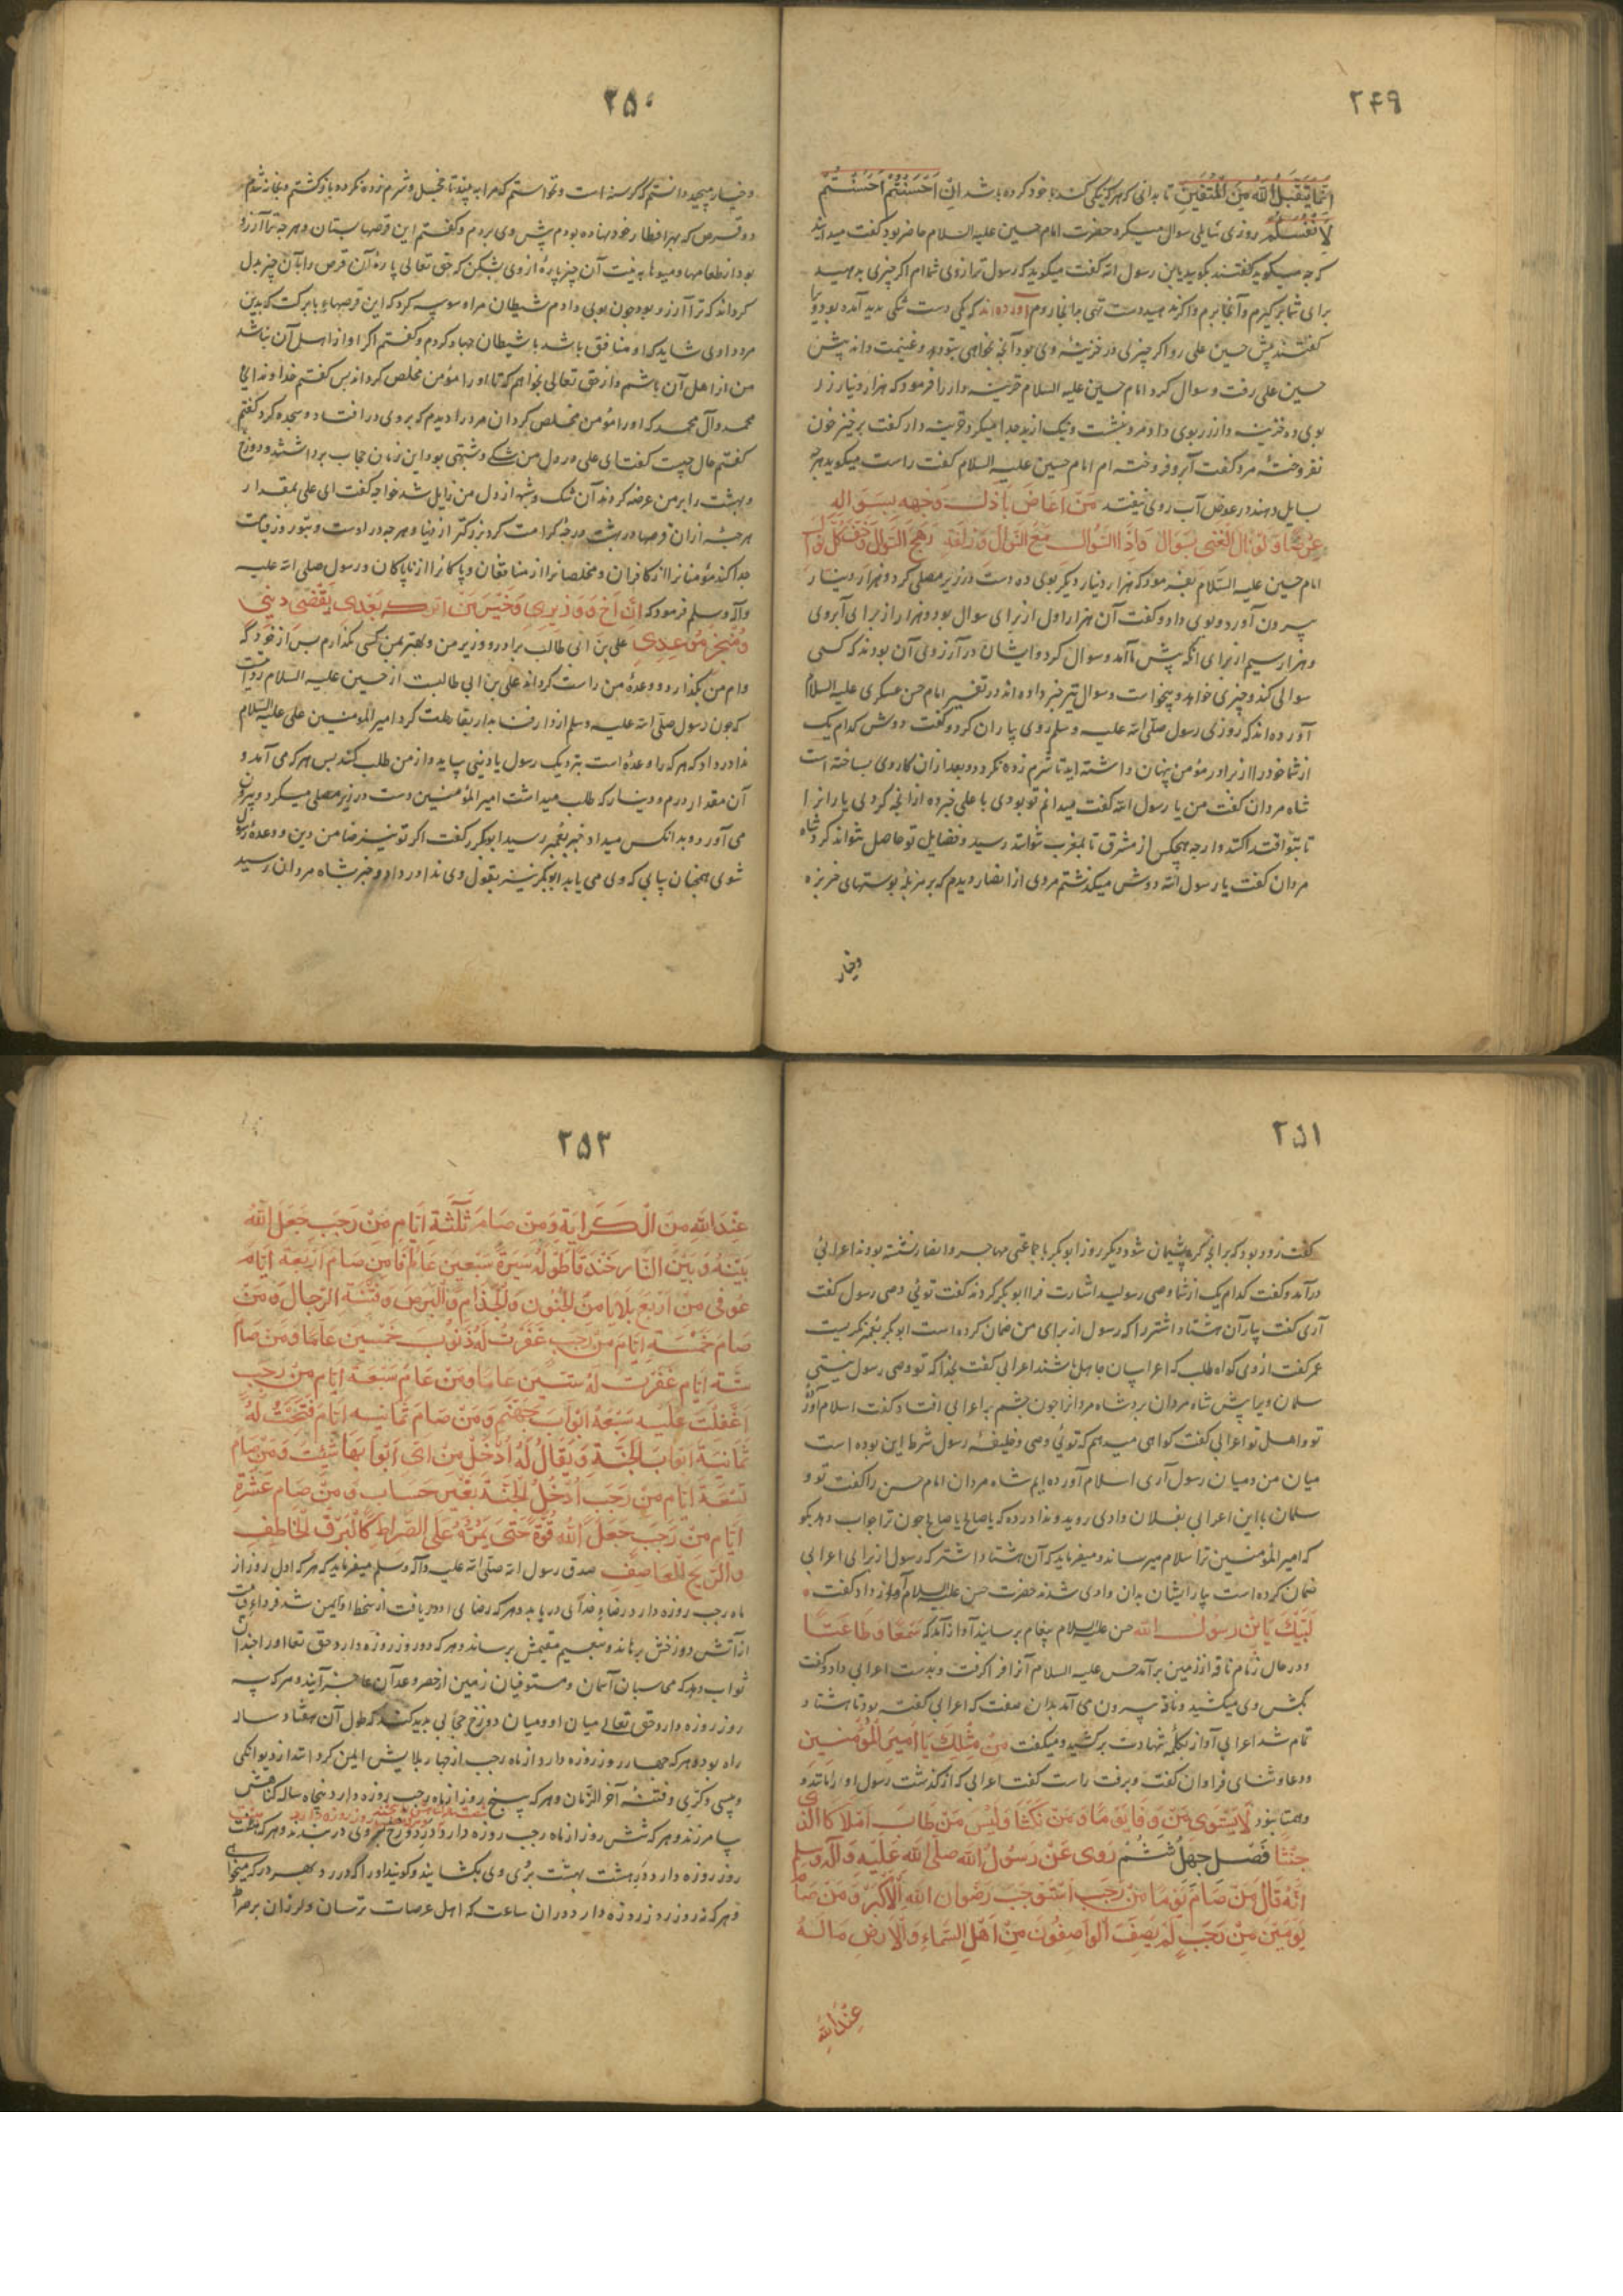 ۲۴۹
انما یتقبل الله من المتقین تا بدانی که هرکه نیکی کند با خود کرده باشد ان احسنتم احسنتم
لانفسکم روزی سایلی سوال میکرد حضرت امام حسین علیه السلام حاضر بود کفت میدانید
که چه میکوید کفتند بکوید یا بن رسول الله کفت میکوید که رسول شما ام اکر چیزی بدهید
برای شما برکیرم و آنجا برم و اکر ندهید دست تهی بدانجا روم آورده اند که یکی دست تنکی بدید آمده بود ویرا
کفتند پیش حسین علی رو اکر چیزی در خزینه وی بود آنچه خواهی بتو دهد و غنیمت داند پیش
حسین علی رفت و سوال کرد امام حسین علیه السلام خزینه دار را فرمود که هزار دینار زر
بوی ده خزینه دار زر بوی داد مرد بنشت و نیک از بد جدا میکرد خزینه دار کفت برخیز خون
نفروختهٔ مرد کفت آبرو فروخته ام امام حسین علیه السلام کفت راست میکوید هرچه
بسایل دهند در عوض آب روی نیفتد ما اعتاض باذل وجهه بسواله
عوضا ولو نال الغنی بسوال واذا السوال مع النوال وزنته رجح السوال وخف کل نوال
امام حسین علیه السلام بفرمود که هزار دینار دیکر بوی ده دست در زیر مصلی کرد و هزار دینار
بیرون آورد و بوی داد و کفت آن هزار اول از برای سوال بود و هزار از برای آبروی
و هزار سیم از برای آنکه پیش ما آمد و سوال کرد و ایشان در آرزوی آن بودند که کسی
سوالی کند و چیزی خواهد و بیخواست و سوال نیز خبر داده اند در تفسیر امام حسن عسکری علیه السلام
آورده اند که روزی رسول صلی الله علیه وسلم روی بیاران کرد و کفت دوش کدام یک
از شما خود را از برادر مؤمن پنهان داشته اید تا شرم زده نکردد و بعد از ان کار وی بساخته است
شاه مردان کفت من یا رسول الله کفت میدانم تو بودی یا علی خبر ده از انچه کردی یارانرا
تا بتو اقتدا کنند وارجه هیچکس از مشرق تا بمغرب نتواند رسید و فضایل تو حاصل نتواند کرد شاه
مردان کفت یا رسول الله دوش میکذشتم مردی از انصار دیدم که بر مزبله پوستهای خربزه
وخیار
۲۵۰
وخیار میچید دانستم که کرسنه است و نخواستم که مرا به بیند تا خجل و شرم زده نکردد بازکشتم و بخانه شدم
دو قرص که بهر افطار خود نهاده بودم پیش وی بردم و کفتم این قرصها بستان و هرچه ترا آرزو
بود از طعامها و میوها به نیت آن چیز پارهٔ از وی بشکن که حق تعالی پارهٔ آن قرص را بآن چیز بدل
کرداند که ترا آرزو بود چون بوی دادم شیطان مرا وسوسه کرد که این قرصهاء بابرکت که بدین
مرد دادی شاید که او منافق باشد با شیطان جهاد کردم و کفتم اکر او از اهل آن نباشد
من از اهل آن باشم و از حق تعالی بخواهم که تا او را مؤمن مخلص کرداند پس کفتم خداوندا بحق
محمد و آل محمد که او را مؤمن مخلص کردان مرد را دیدم که بروی در افتاد و سجده کرد کفتم
کفتم حال چیست کفت ای علی در دل من شکی و شبهتی بود این زمان حجاب برداشتند و دوزخ
و بهشت را بر من عرضه کردند آن شک و شبه از دل من زایل شد خواجه کفت ای علی بمقدار
هر حبهٔ از ان قرصها در بهشت درجهٔ کرامت کرد بزرکتر از دنیا و هر چه در اوست و بتو روز قیامت
جدا کند مؤمنانرا از کافران و مخلصانرا از منافقان و پاکانرا از ناپاکان و رسول صلی الله علیه
وآله وسلم فرمود که ان اخی ووزیری وخیر من اترک بعدی یقضی دینی
و منجز موعدی علی بن ابی طالب برادر و وزیر من و بهتر من کسی بکذارم پس از خود که
وام من بکذارد و وعدهٔ من راست کرداند علی بن ابی طالبست از حسین علیه السلام روایت
که چون رسول صلی الله علیه وسلم از دار فنا بدار بقا رحلت کرد امیرالمؤمنین علی علیه السلام
ندا در داد که هر که را وعدهٔ است بنزدیک رسول یا دینی بیاید و از من طلب کند پس هر که می آمد و
آن مقدار درم و دینار که طلب میداشت امیرالمؤمنین دست در زیر مصلی میکرد و بیرون
می آورد و بدانکس میداد خبر بعمر رسید ابوبکر را کفت اکر تو نیز ضامن دین و وعدهٔ رسول
شوی همچنان بیابی که وی می یابد ابوبکر نیز بقول وی ندا در داد و خبر بشاه مردان رسید
۲۵۱
کفت زود بود که برانچه کرد پشیمان شود دیکر روز ابوبکر با جماعتی مهاجر و انصار نشسته بودند اعرابئ
درآمد و کفت کدام یک از شما وصی رسولید اشارت فرا ابوبکر کردند کفت توئی وصی رسول کفت
آری کفت بیار آن هشتاد اشتر را که رسول از برای من ضمان کرده است ابوبکر بعمر نکریست
عمر کفت از وی کواه طلب که اعرابیان جاهل باشند اعرابی کفت بخدا که تو وصی رسول نیستی
سلمان ویرا پیش شاه مردان برد شاه مردانرا چون چشم به اعرابی افتاد کفت اسلام آورد
تو و اهل تو اعرابی کفت کواهی میدهم که توئی وصی و خلیفهٔ رسول شرط این بوده است
میان من و میان رسول آری اسلام آورده ایم شاه مردان امام حسن را کفت تو و
سلمان با این اعرابی بفلان وادی روید و ندا در ده که یا صالح یا صالح چون ترا جواب دهد بکو
که امیرالمؤمنین ترا سلام میرساند و میفرماید که آن هشتاد اشتر که رسول از برای اعرابی
ضمان کرده است بیار ایشان بدان وادی شدند حضرت حسن علیه السلام آواز داد کفت
لبیک یا بن رسول الله حسن علیه السلام پیغام برسانید آواز آمد که سمعا وطاعتا
و در حال زمام ناقه از زمین برآمد حسن علیه السلام آنرا فرا کرفت و بدست اعرابی داد و کفت
بکش وی میکشید و ناقه بیرون می آمد بدان صفت که اعرابی کفته بود تا هشتاد
تمام شد اعرابی آواز بکلمهٔ شهادت برکشید و میکفت من مثلک یا امیر المؤمنین
و دعا و ثنای فراوان کفت و برفت راست کفت اعرابی که از کذشت رسول او را مانند و
همتا نبود لا یستوی من وفا یوما ومن نکثا ولیس من طاب اصلا کالذی
خبثا فصل چهل ششم روی عن رسول الله صلی الله علیه وآله وسلم
انه قال من صام یوما من رجب استوجب رضوان الله الاکبر ومن صام
یومین من رجب لم یصف الواصفون من اهل السماء والارض ما له
عندالله
۲۵۲
عند الله من الکرامة ومن صام ثلثة ایام من رجب جعل الله
بینه وبین النار خندقا طوله مسیرة سبعین عاما ومن صام اربعة ایام
عوفی من اربع بلایا من الجنون والجذام والبرص وفتنة الدجال ومن
صام خمسة ایام من رجب غفرت له ذنوب خمسین عاما ومن صام
ستة ایام غفرت له ستین عاما ومن صام سبعة ایام من رجب
اغفلت علیه سبعة ابواب جهنم ومن صام ثمانیه ایام فتحت له
ثمانیة ابواب الجنة ویقال له ادخل من ای ابوابها شئت ومن صام
تسعة ایام من رجب ادخل الجنة بغیر حساب ومن صام عشرة
ایام من رجب جعل الله قوة حتی یمر علی الصراط کالبرق الخاطف
والریح العاصف صدق رسول الله صلی الله علیه وآله وسلم میفرماید که هر که اول روز از
ماه رجب روزه دارد رضاء خدای دریابد و هر که رضای او دریافت از سخط او ایمن شد فردای قیامت
از آتش دوزخش برهاند و بنعیم مقیمش برساند و هر که دو روز روزه دارد حق تعالی او را چندان
ثواب دهد که محاسبان آسمان و مستوفیان زمین از حصر و عد آن عاجز آیند و هر که سه
روز روزه دارد حق تعالی میان او و میان دوزخ حجابی بدید کند که طول آن هفتاد ساله
راه بود و هر که چهار روز روزه دارد از ماه رجب از چهار بلایش ایمن کرداند از دیوانکی
و پیسی و کری و فتنهٔ آخر الزمان و هر که پنج روز از ماه رجب روزه دارد پنجاه ساله کناهش
بیامرزند و هر که شش روز از ماه رجب روزه دارد در دوزخ بر وی در بندند و هر که هشت
روز روزه دارد در هشت بهشت بر وی بکشایند و کویند او را که در رو بهر در که میخواهی
و هر که نه روز روزه دارد در ان ساعت که اهل عرصات ترسان و لرزان بر صراط